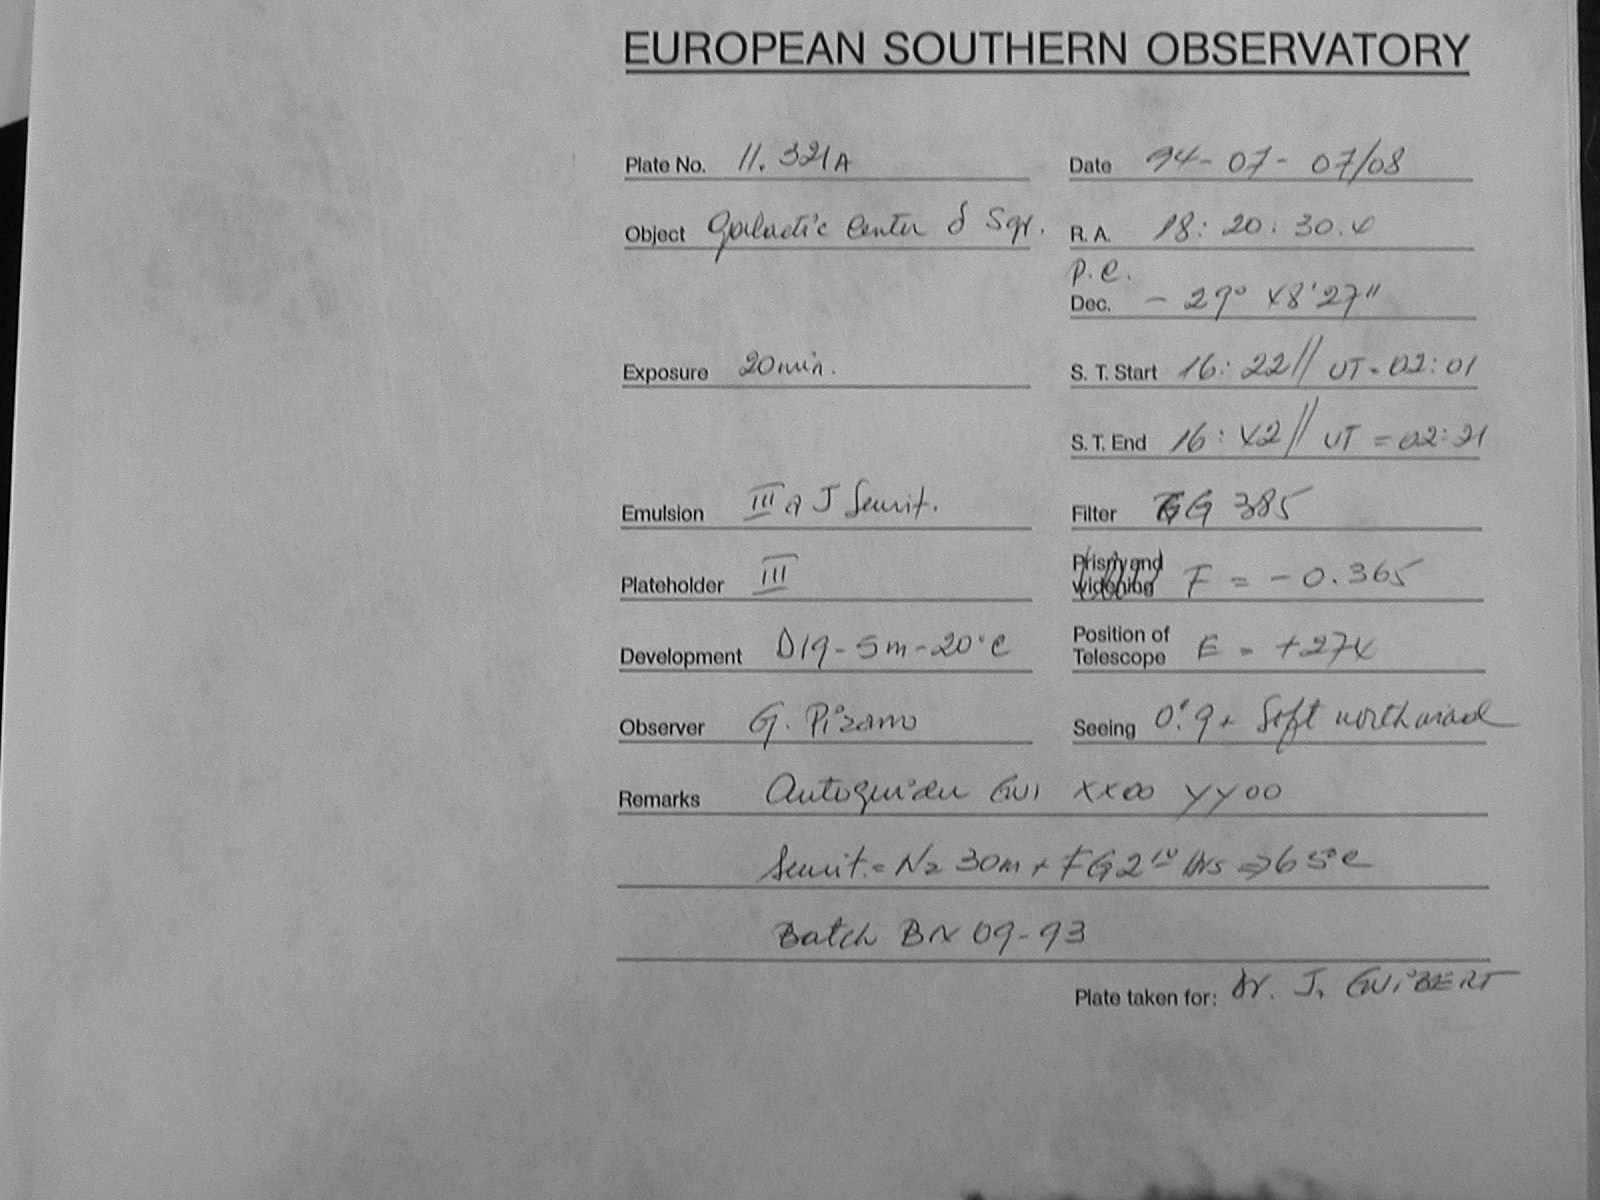 EUROPEAN SOUTHERN OBSERVATORY
Plate No. 11.321A Date 94-07-07/08
Object Galactic Center δ Sgr. R. A. 18:20:30.4
p.e.
Dec. -29° 48'27"
Exposure 20min. S. T. Start 16:22// UT=02:01
S. T. End 16:42// UT=02:21
Emulsion III a J Sensit. Filter GG 385
Plateholder III Prism and widening F = -0.365
Development D19-5m-20°C Position of Telescope E = +274
Observer G. Pizarro Seeing 0".9+ Soft north wind
Remarks Autoguider GUI XX00 YY00
Sensit.= N2 30m + FG 2 hrs => 65°C
Batch BN 09-93
Plate taken for: Dr. J. GUIBERT